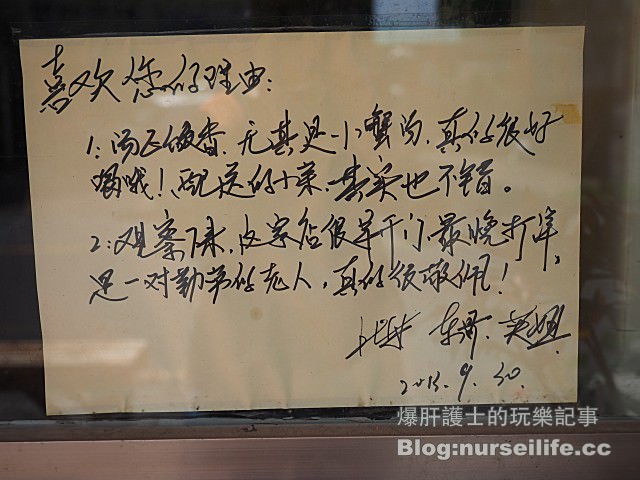 喜欢您的理由:
1:汤正便香,尤其是小蟹汤,真的很好
喝哦!配送的小菜其实也不错。
2:观察下来,这家店很早开门最晚打烊,
是一对勤劳的老人,真的很敬佩!
英姐.
2013.9.30.
爆肝護士的玩樂記事
Blog:nurseilife.cc